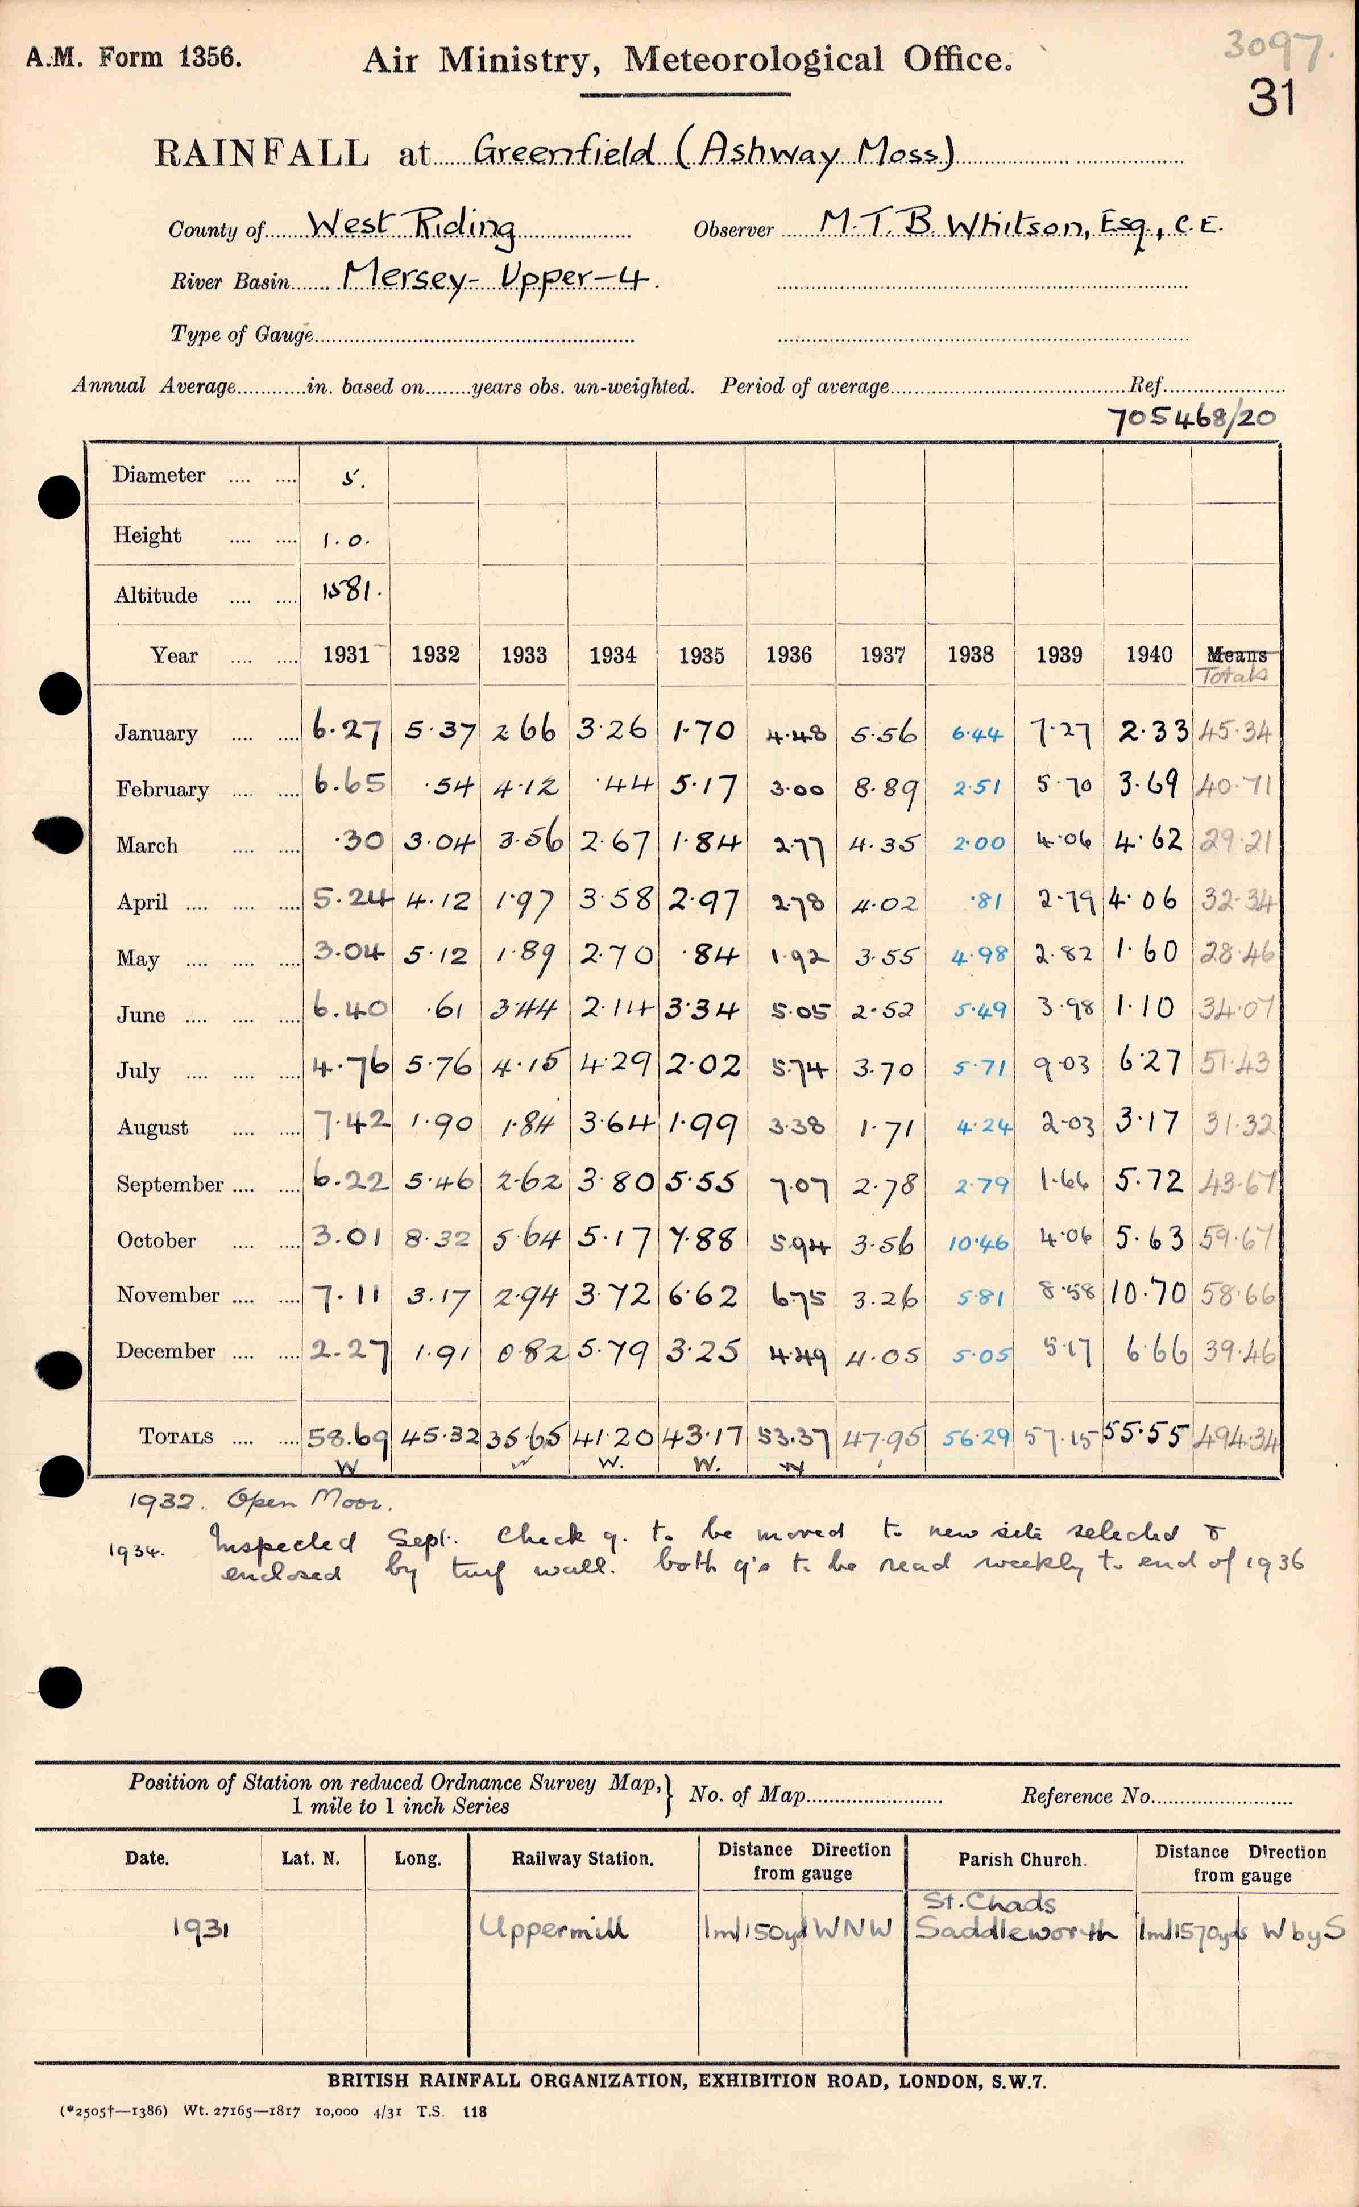 A.M. Form 1356.
Air Ministry, Meteorological Office.
3097.
31
RAINFALL at Greenfield (Ashway Moss)
County of West Riding Observer M.T.B. Whitson, Esq., C.E.
River Basin Mersey - Upper - 4.
Type of Gauge
Annual Average in. based on years obs. un-weighted. Period of average Ref.
705468/20
Diameter 5.
Height 1.0.
Altitude 1581.
Year 1931 1932 1933 1934 1935 1936 1937 1938 1939 1940 Means
Totals
January 6.27 5.37 2.66 3.26 1.70 4.48 5.56 6.44 7.27 2.33 45.34
February 6.65 .54 4.12 .44 5.17 3.00 8.89 2.51 5.70 3.69 40.71
March .30 3.04 3.56 2.67 1.84 2.77 4.35 2.00 4.06 4.62 29.21
April 5.24 4.12 1.97 3.58 2.97 2.78 4.02 .81 2.79 4.06 32.34
May 3.04 5.12 1.89 2.70 .84 1.92 3.55 4.98 2.82 1.60 28.46
June 6.40 .61 3.44 2.14 3.34 5.05 2.52 5.49 3.98 1.10 34.07
July 4.76 5.76 4.15 4.29 2.02 5.74 3.70 5.71 9.03 6.27 51.43
August 7.42 1.90 1.84 3.64 1.99 3.38 1.71 4.24 2.03 3.17 31.32
September 6.22 5.46 2.62 3.80 5.55 7.07 2.78 2.79 1.66 5.72 43.67
October 3.01 8.32 5.64 5.17 7.88 5.94 3.56 10.46 4.06 5.63 59.67
November 7.11 3.17 2.94 3.72 6.62 6.75 3.26 5.81 8.58 10.70 58.66
December 2.27 1.91 0.82 5.79 3.25 4.49 4.05 5.05 5.17 6.66 39.46
TOTALS 58.69 45.32 35.65 41.20 43.17 53.37 47.95 56.29 57.15 55.55 494.34
W W W. W. W
1932. Open Moor.
1934. Inspected Sept. Check g. to be moved to new site selected &
enclosed by turf wall. both g's to be read weekly to end of 1936
Position of Station on reduced Ordnance Survey Map,
1 mile to 1 inch Series } No. of Map Reference No.
Date. Lat. N. Long. Railway Station. Distance Direction from gauge Parish Church. Distance Direction from gauge
St. Chads
1931 Uppermill 1ml 150yd WNW Saddleworth 1ml 1570yds W by S
BRITISH RAINFALL ORGANIZATION, EXHIBITION ROAD, LONDON, S.W.7.
(*2505†—1386) Wt. 27165—1817 10,000 4/31 T.S. 118